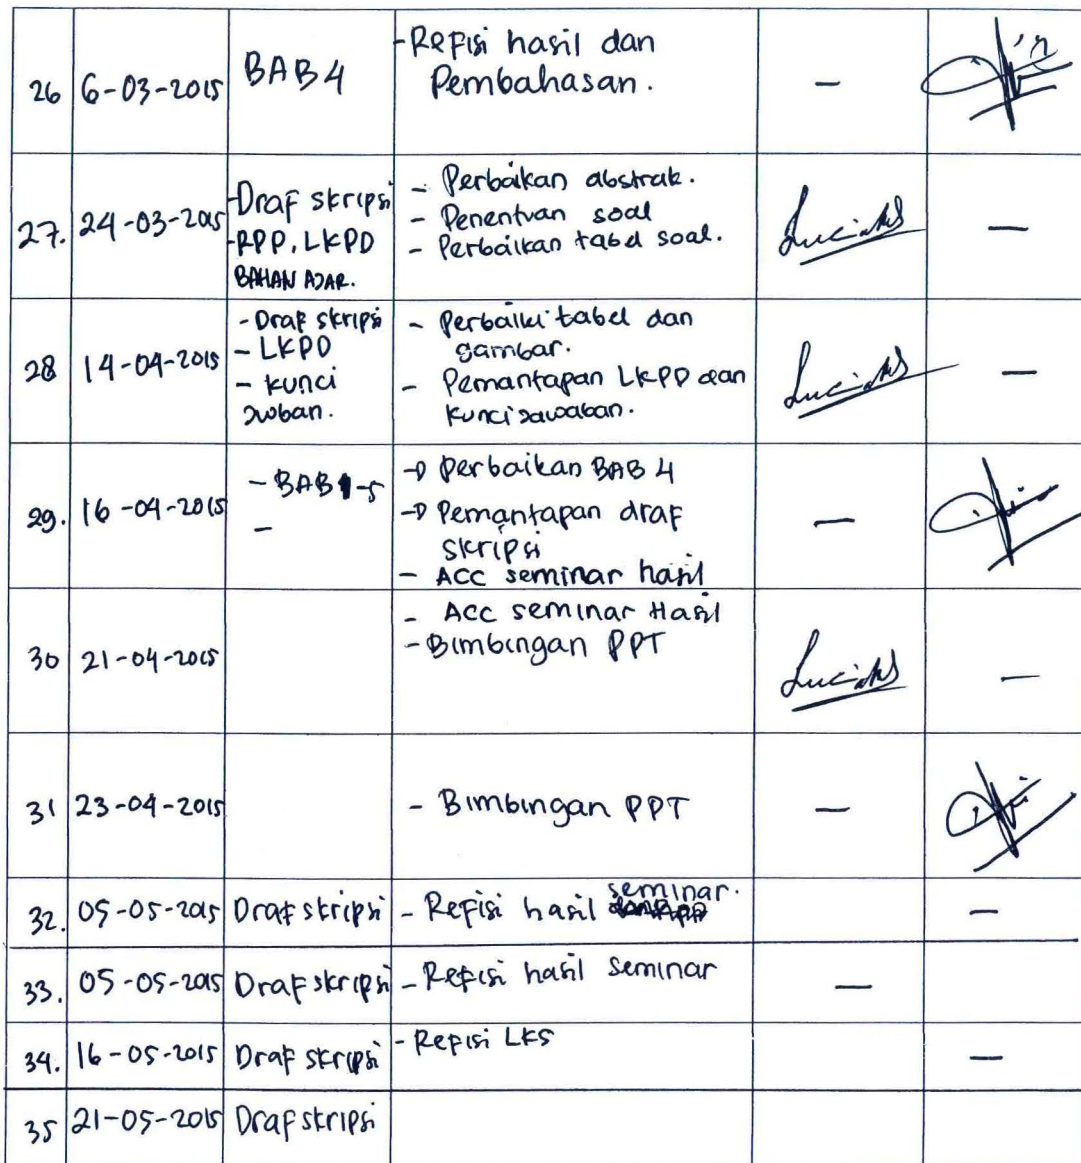 26 6-03-2015 BAB 4 - Refisi hasil dan
Pembahasan. -
27. 24-03-2015 - Draf skripsi - Perbaikan abstrak.
- RPP, LKPD - Penentuan soal
BAHAN AJAR. - Perbaikan tabel soal. -
28 14-04-2015 - Draf skripsi - Perbaiki tabel dan
- LKPD gambar.
- kunci - Pemantapan LKPD dan
jwoban. kunci jawaban. -
29. 16-04-2015 - BAB 1-5 → Perbaikan BAB 4
- → Pemantapan draf
skripsi
- ACC seminar hasil -
30 21-04-2015 - ACC seminar Hasil
- Bimbingan PPT -
31 23-04-2015 - Bimbingan PPT -
32. 05-05-2015 Draf skripsi - Refisi hasil seminar. -
33. 05-05-2015 Draf skripsi - Refisi hasil seminar -
34. 16-05-2015 Draf skripsi - Refisi LKS -
35 21-05-2015 Draf skripsi